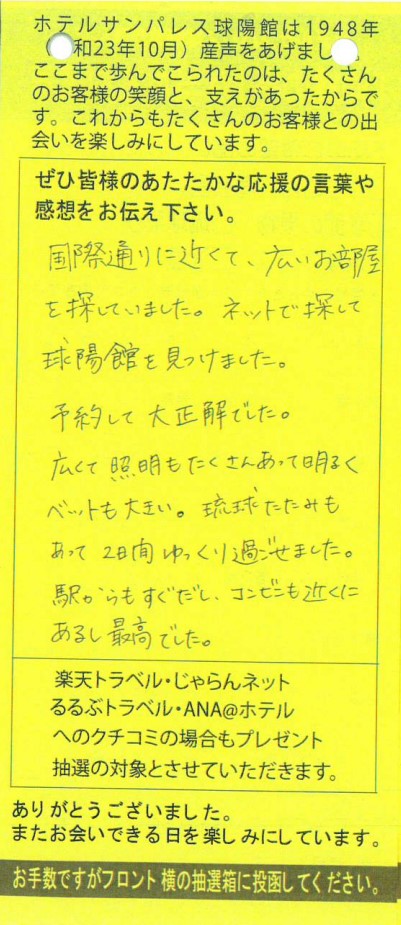 ホテルサンパレス球陽館は1948年
(和23年10月）産声をあげまし
ここまで歩んでこられたのは、たくさん
のお客様の笑顔と、支えがあったからで
す。これからもたくさんのお客様との出
会いを楽しみにしています。
ぜひ皆様のあたたかな応援の言葉や
感想をお伝え下さい。
国際通りに近くて、広いお部屋
を探していました。ネットで探して
球陽館を見つけました。
予約して大正解でした。
広くて照明もたくさんあって明るく
ベットも大きい。琉球たたみも
あって2日間ゆっくり過ごせました。
駅からもすぐだし、コンビニも近くに
あるし最高でした。
楽天トラベル・じゃらんネット
るるぶトラベル・ANA@ホテル
へのクチコミの場合もプレゼント
抽選の対象とさせていただきます。
ありがとうございました。
またお会いできる日を楽しみにしています。
お手数ですがフロント横の抽選箱に投函してください。